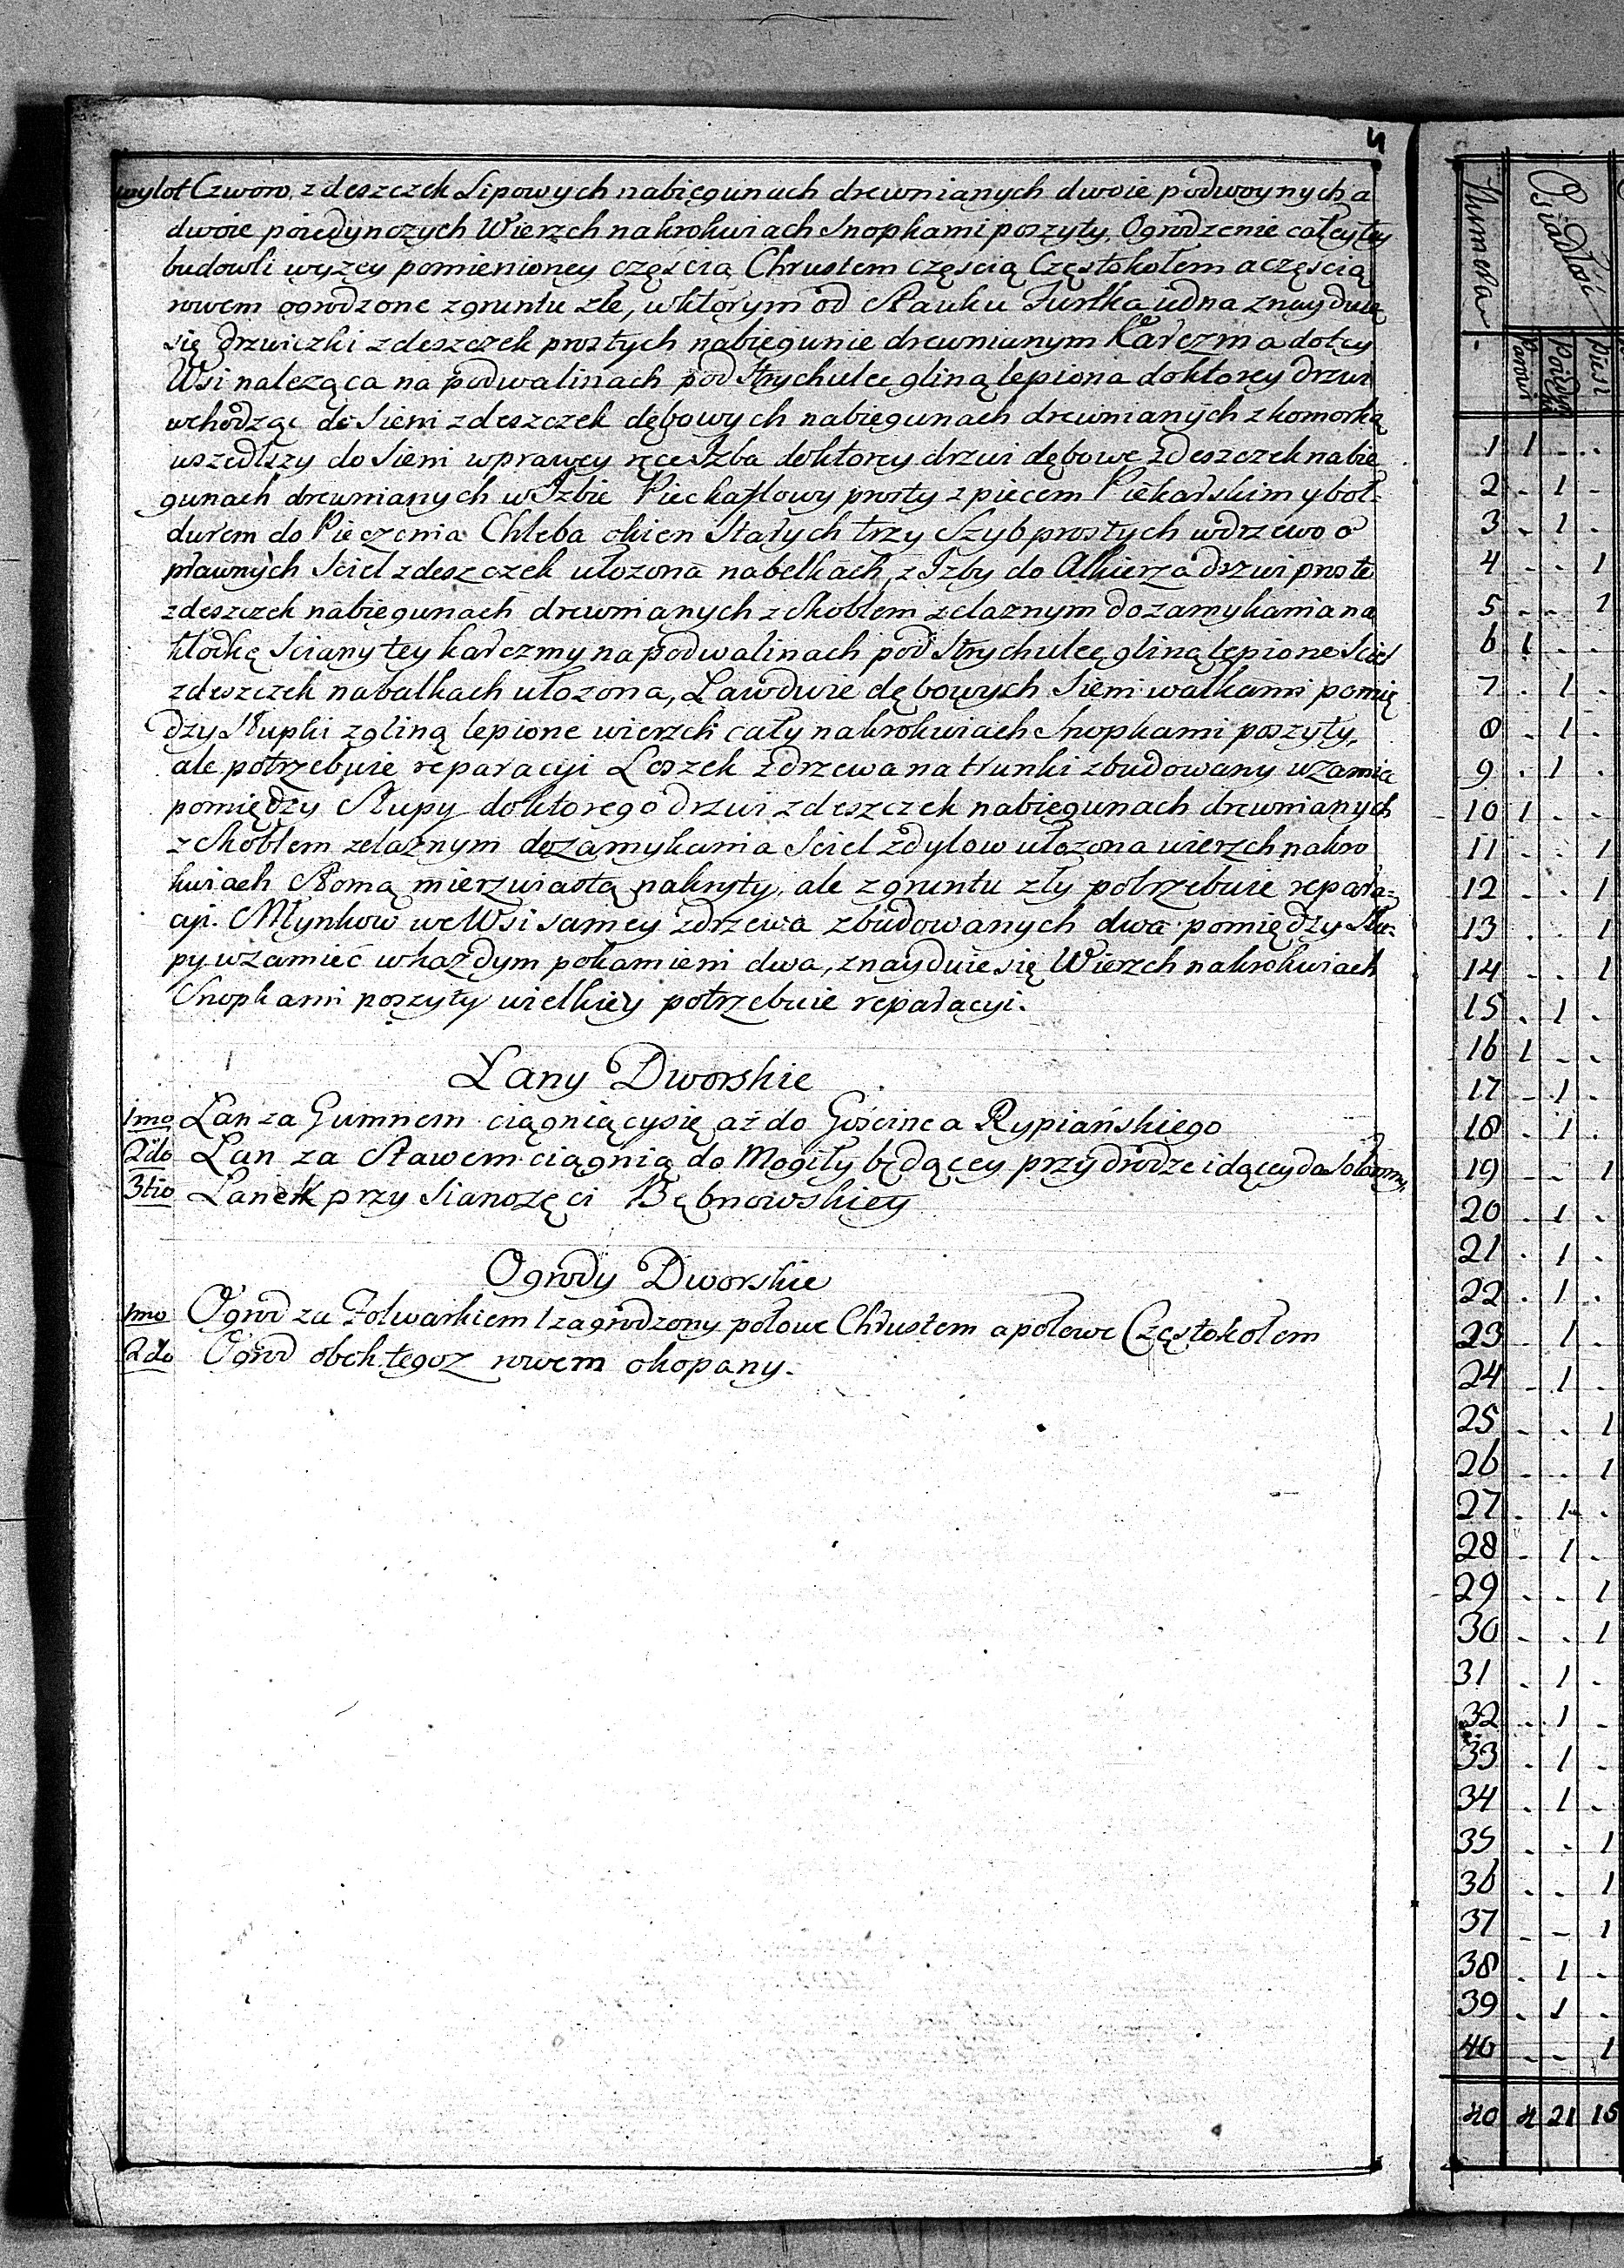 4
wylot Czworo, z deszczek Lipowych nabiegunach drewnianych dwoie podwoynych a
dwoie poiedynczych Wierzch na krokwiach Snopkami poszyty. Ogrodzenie całey tey
budowli wyzey pomienioney częścią Chrustem częścią Częstokołem a częścią
rowem ogrodzone z gruntu złe, w ktorym od Stawku Furtka iedna znayduie
się drzwiczki z deszczek prostych nabiegunie drewnianym Karczma do tey
Wsi naleząca na podwalinach pod Strychulec gliną lepiona do ktorey drzwi
wchodząc do Sieni z deszczek dębowych nabiegunach drewnianych z komorką
wszedłszy do Sieni w prawey ręce Izba do ktorey drzwi dębowe z deszczek nabie
gunach drewnianych w Izbie Piec kaflowy prosty z piecem Piekarskim y boł-
durem do Pieczenia Chleba okien Starych trzy Szyb prostych w drzewo o
prawnych Sciel z deszczek ułozona na belkach, z Izby do Alkierza drzwi proste
z deszczek nabiegunach drewnianych z Skoblem zelaznym do zamykania na
kłodkę Sciany tey karczmy na podwalinach pod Strychulec gliną lepione Sciel
z deszczek na balkach ułozona, Ław dwie dębowych Sieni walkami pomię
dzy Słupki z gliną lepione wierzch cały na krokwiach Snopkami poszyty,
ale potrzebuie reparacyi Loszek z drzewa na trunki zbudowany w zamie
pomiędzy Słupy do ktorego drzwi z deszczek nabiegunach drewnianych
z Skoblem zelaznym do zamykania Sciel z dylow ułozona wierzch na kro
kwiach Słomą mierzwiastą nakryty, ale z gruntu zły potrzebuie repara-
cyi. Młynkow we Wsi samey z drzewa zbudowanych dwa pomiędzy Słu-
py w zamieć w kazdym po kamieni dwa, znayduie się Wierzch na krokwiach
Snopkami poszyty wielkiey potrzebuie reparacyi.
Łany Dworskie
1mo Łan za Gumnem ciągniący się az do Gościnca Rypiańskiego
2do Łan za Stawem ciągnią do Mogiły będącey przy drodze idącey do
3tio Łanek przy Sianozęci Bębnowskiey
Ogrody Dworskie
1mo Ogrod za Folwarkiem zagrodzony połowe Chrustem a połowe Częstokołem
2do Ogrod obok tegoz rowem okopany.
Numera Osiadłość
Parowi Poiedyn Piesi
1 1 . .
2 . 1 .
3 . 1 .
4 . . 1
5 . . 1
6 1 . .
7 . 1 .
8 . 1 .
9 . 1 .
10 1 . .
11 . . 1
12 . . 1
13 . . 1
14 . . 1
15 . 1 .
16 1 . .
17 . 1 .
18 . 1 .
19 . . 1
20 . 1 .
21 . 1 .
22 . 1 .
23 . 1 .
24 . 1 .
25 . . 1
26 . . 1
27 . 1 .
28 . 1 .
29 . . 1
30 . . 1
31 . 1 .
32 . 1 .
33 . 1 .
34 . 1 .
35 . . 1
36 . . 1
37 . . 1
38 . 1 .
39 . 1 .
40 . . 1
40 4 21 15